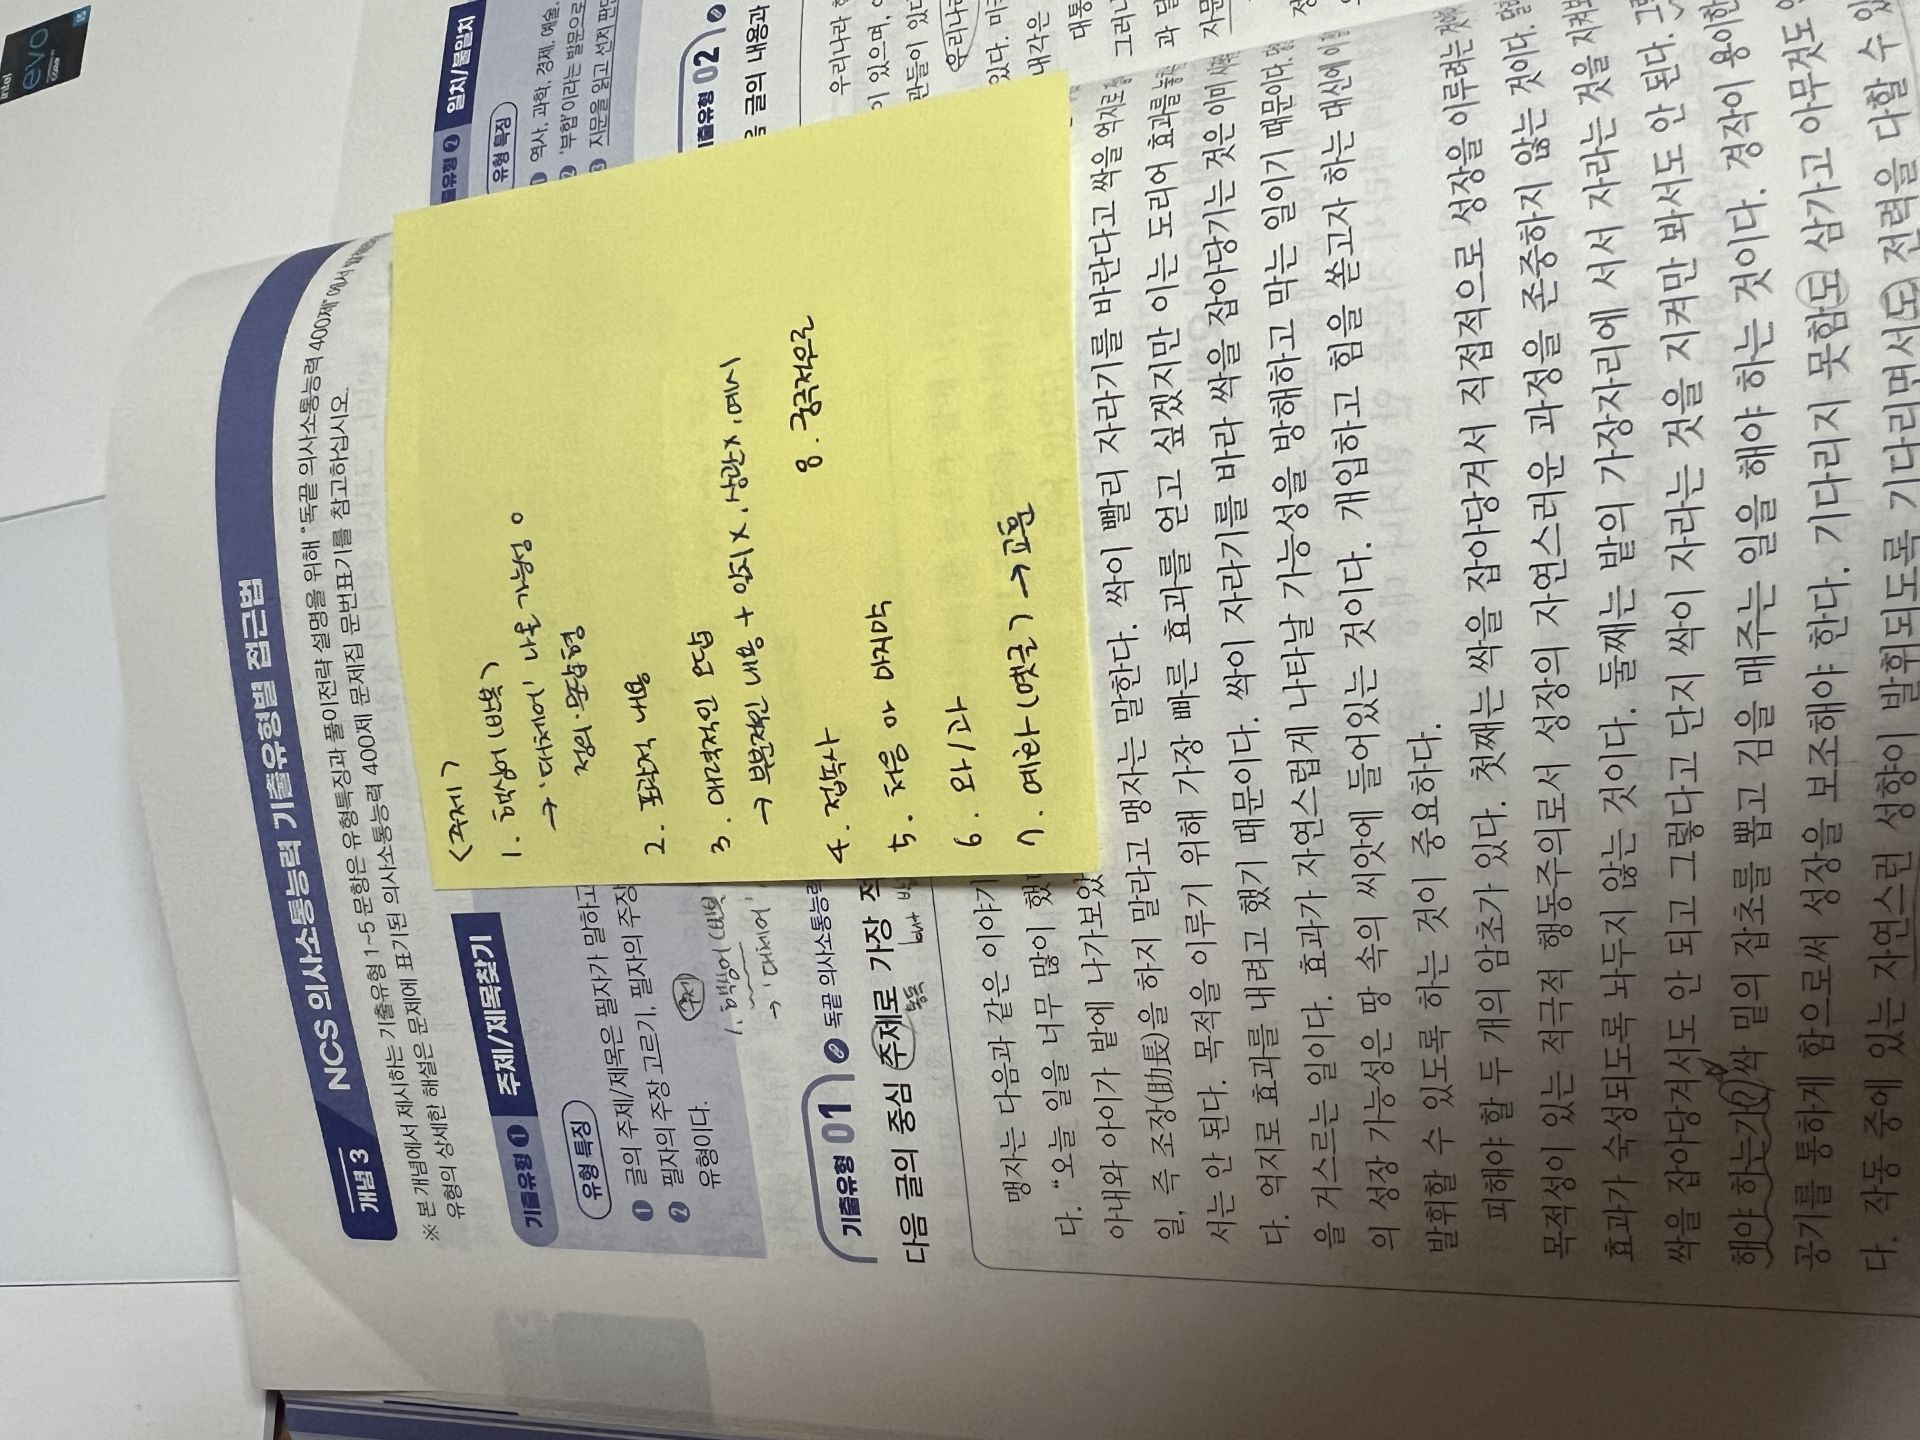 intel
evo
CORE
개념 3 NCS 의사소통능력 기출유형별 접근법
※ 본 개념에서 제시하는 기출유형 1~5 문항은 유형특징과 풀이전략 설명을 위해 "독끝 의사소통능력 400제" 에서
유형의 상세한 해설은 문제에 표기된 의사소통능력 400제 문제집 문번표기를 참고하십시오.
기출유형 1 주제/제목찾기
유형 특징
1 글의 주제/제목은 필자가 말하고
2 필자의 주장 고르기, 필자의 주장
유형이다.
주제
1. 핵심어 (반복
→ '대체어'
<주제>
1. 핵심어(반복)
→ '대체어' 나올 가능성 o
정의·문답형
2. 포괄적 내용
3. 대표적인 오답
→ 부분적인 내용 + 일치 x, 상관 x, 예시
4. 접속사
5. 처음 or 마지막
6. 와/과
7. 예화 (옛글) → 교훈
8. 궁극적으로
기출유형 01 독끝 의사소통능력
다음 글의 중심 주제로 가장 적
맹자는 다음과 같은 이야기
다. "오늘 일을 너무 많이 했
아내와 아이가 밭에 나가보았
일, 즉 조장(助長)을 하지 말라고 맹자는 말한다. 싹이 빨리 자라기를 바란다고 싹을 억지로
서는 안 된다. 목적을 이루기 위해 가장 빠른 효과를 얻고 싶겠지만 이는 도리어 효과를 놓치
다. 억지로 효과를 내려고 했기 때문이다. 싹이 자라기를 바라 싹을 잡아당기는 것은 이미 시작
을 거스르는 일이다. 효과가 자연스럽게 나타날 가능성을 방해하고 막는 일이기 때문이다.
의 성장 가능성은 땅 속의 씨앗에 들어있는 것이다. 개입하고 힘을 쏟고자 하는 대신에 이
발휘할 수 있도록 하는 것이 중요하다.
피해야 할 두 개의 암초가 있다. 첫째는 싹을 잡아당겨서 직접적으로 성장을 이루려는 것이다.
목적성이 있는 적극적 행동주의로서 성장의 자연스러운 과정을 존중하지 않는 것이다. 달리
효과가 숙성되도록 놔두지 않는 것이다. 둘째는 밭의 가장자리에 서서 자라는 것을 지켜보
싹을 잡아당겨서도 안 되고 그렇다고 단지 싹이 자라는 것을 지켜만 봐서도 안 된다. 그
해야 하는가? 싹 밑의 잡초를 뽑고 김을 매주는 일을 해야 하는 것이다. 경작이 용이한
공기를 통하게 함으로써 성장을 보조해야 한다. 기다리지 못함도 삼가고 아무것도
다. 작동 중에 있는 자연스런 성향이 발휘되도록 기다리면서도 전력을 다할 수 있
기출유형 2 일치/불일치
유형 특징
역사, 과학, 경제, 예술,
'부합'이라는 발문으로
지문을 읽고 선지 판단
기출유형 02
글의 내용과
우리나라
이 있으며,
관들이 있다
우리나라
있다. 미국
내각은
대통
그러나
과 달